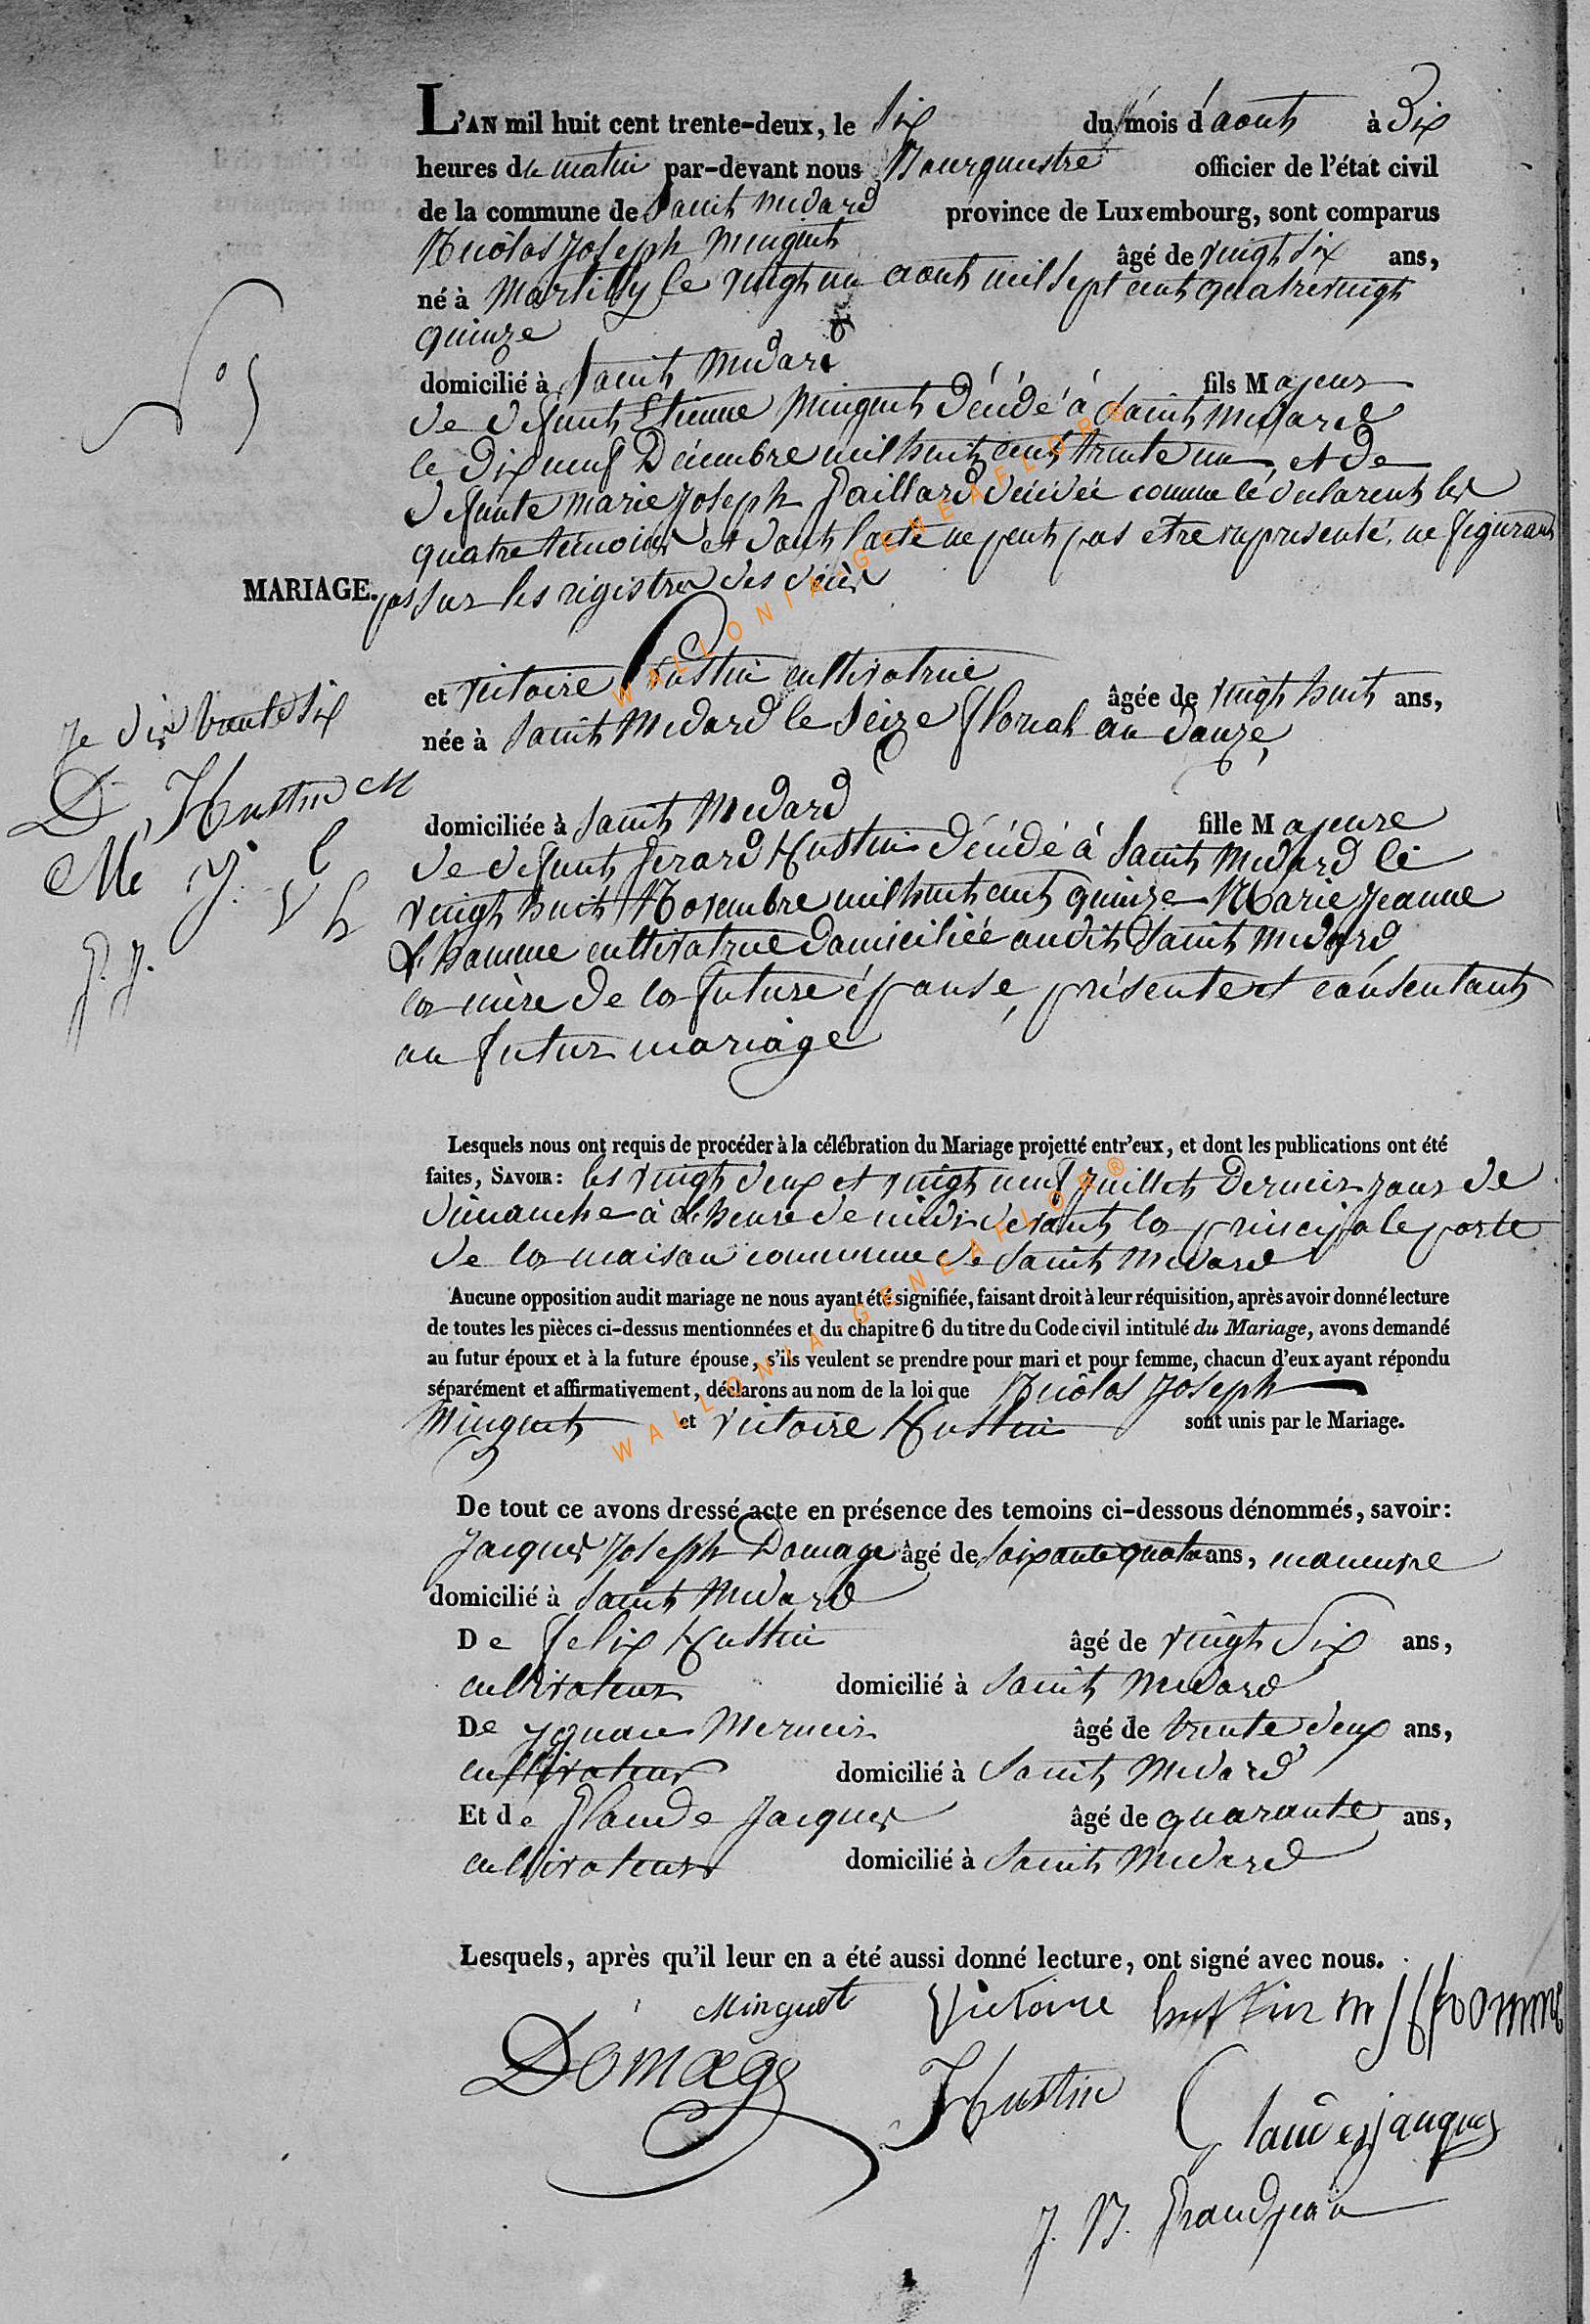 L'AN mil huit cent trente-deux, le six du mois d'aout à Dix
heures du matin par-devant nous Bourguestre officier de l'état civil
de la commune de Saint Médard province de Luxembourg, sont comparus
Nicolas Joseph Minguet âgé de vingt six ans,
né à Martilly le vingt un aout mil sept cent quatrevingt
quinze
domicilié à Saint Medard fils Majeur
de defunt Etienne Minguet décédé à Saint Medard
le dix neuf Décembre mil huit cent trente un, et de
defunte Marie Joseph Gaillard décédée comme le declarent les
quatre témoins et dont l'acte ne peut pas etre représenté, ne figurant
MARIAGE. pas sur les registres des décès
et Victoire Hustin cultivatrice âgée de vingt huit ans,
Je dis trente six
née à Saint Medard le seize floreal an douze,
D Hustin M
Me J. l
V h
J. J.
domiciliée à Saint Medard fille Majeure
de defunt Gerard Hustin décédé à Saint Medard le
vingt huit Novembre mil huit cent quinze Marie Jeanne
Lhomme cultivatrice domiciliée audit Saint Medard
la mère de la future épouse, présente et consentant
au futur mariage
Lesquels nous ont requis de procéder à la célébration du Mariage projetté entr'eux, et dont les publications ont été
faites, SAVOIR: les vingt deux et vingt neuf juillet dernier jour de
dimanche à l'heure de midi devant la principale porte
de la maison commune de Saint Medard
Aucune opposition audit mariage ne nous ayant été signifiée, faisant droit à leur réquisition, après avoir donné lecture
de toutes les pièces ci-dessus mentionnées et du chapitre 6 du titre du Code civil intitulé du Mariage, avons demandé
au futur époux et à la future épouse, s'ils veulent se prendre pour mari et pour femme, chacun d'eux ayant répondu
séparément et affirmativement, déclarons au nom de la loi que Nicolas Joseph
Minguet et Victoire Hustin sont unis par le Mariage.
De tout ce avons dressé acte en présence des temoins ci-dessous dénommés, savoir:
Jacques Joseph Domage âgé de soixante quatre ans, manoeuvre
domicilié à Saint Medard
De Felix Hustin âgé de vingt six ans,
cultivateur domicilié à Saint Medard
De ignace Mernier âgé de trente deux ans,
cultivateur domicilié à Saint Medard
Et de Glaude Jacques âgé de quarante ans,
cultivateur domicilié à Saint Medard
Lesquels, après qu'il leur en a été aussi donné lecture, ont signé avec nous.
Minguet Victoire hustin m J lhomme
Domage Hustin Claude jacques
J. B. Grandjean
WALLONIA-GENEAFLOR®
WALLONIA-GENEAFLOR®